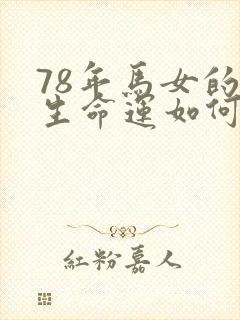 78年馬女的
生命運如何
紅粉嘉人